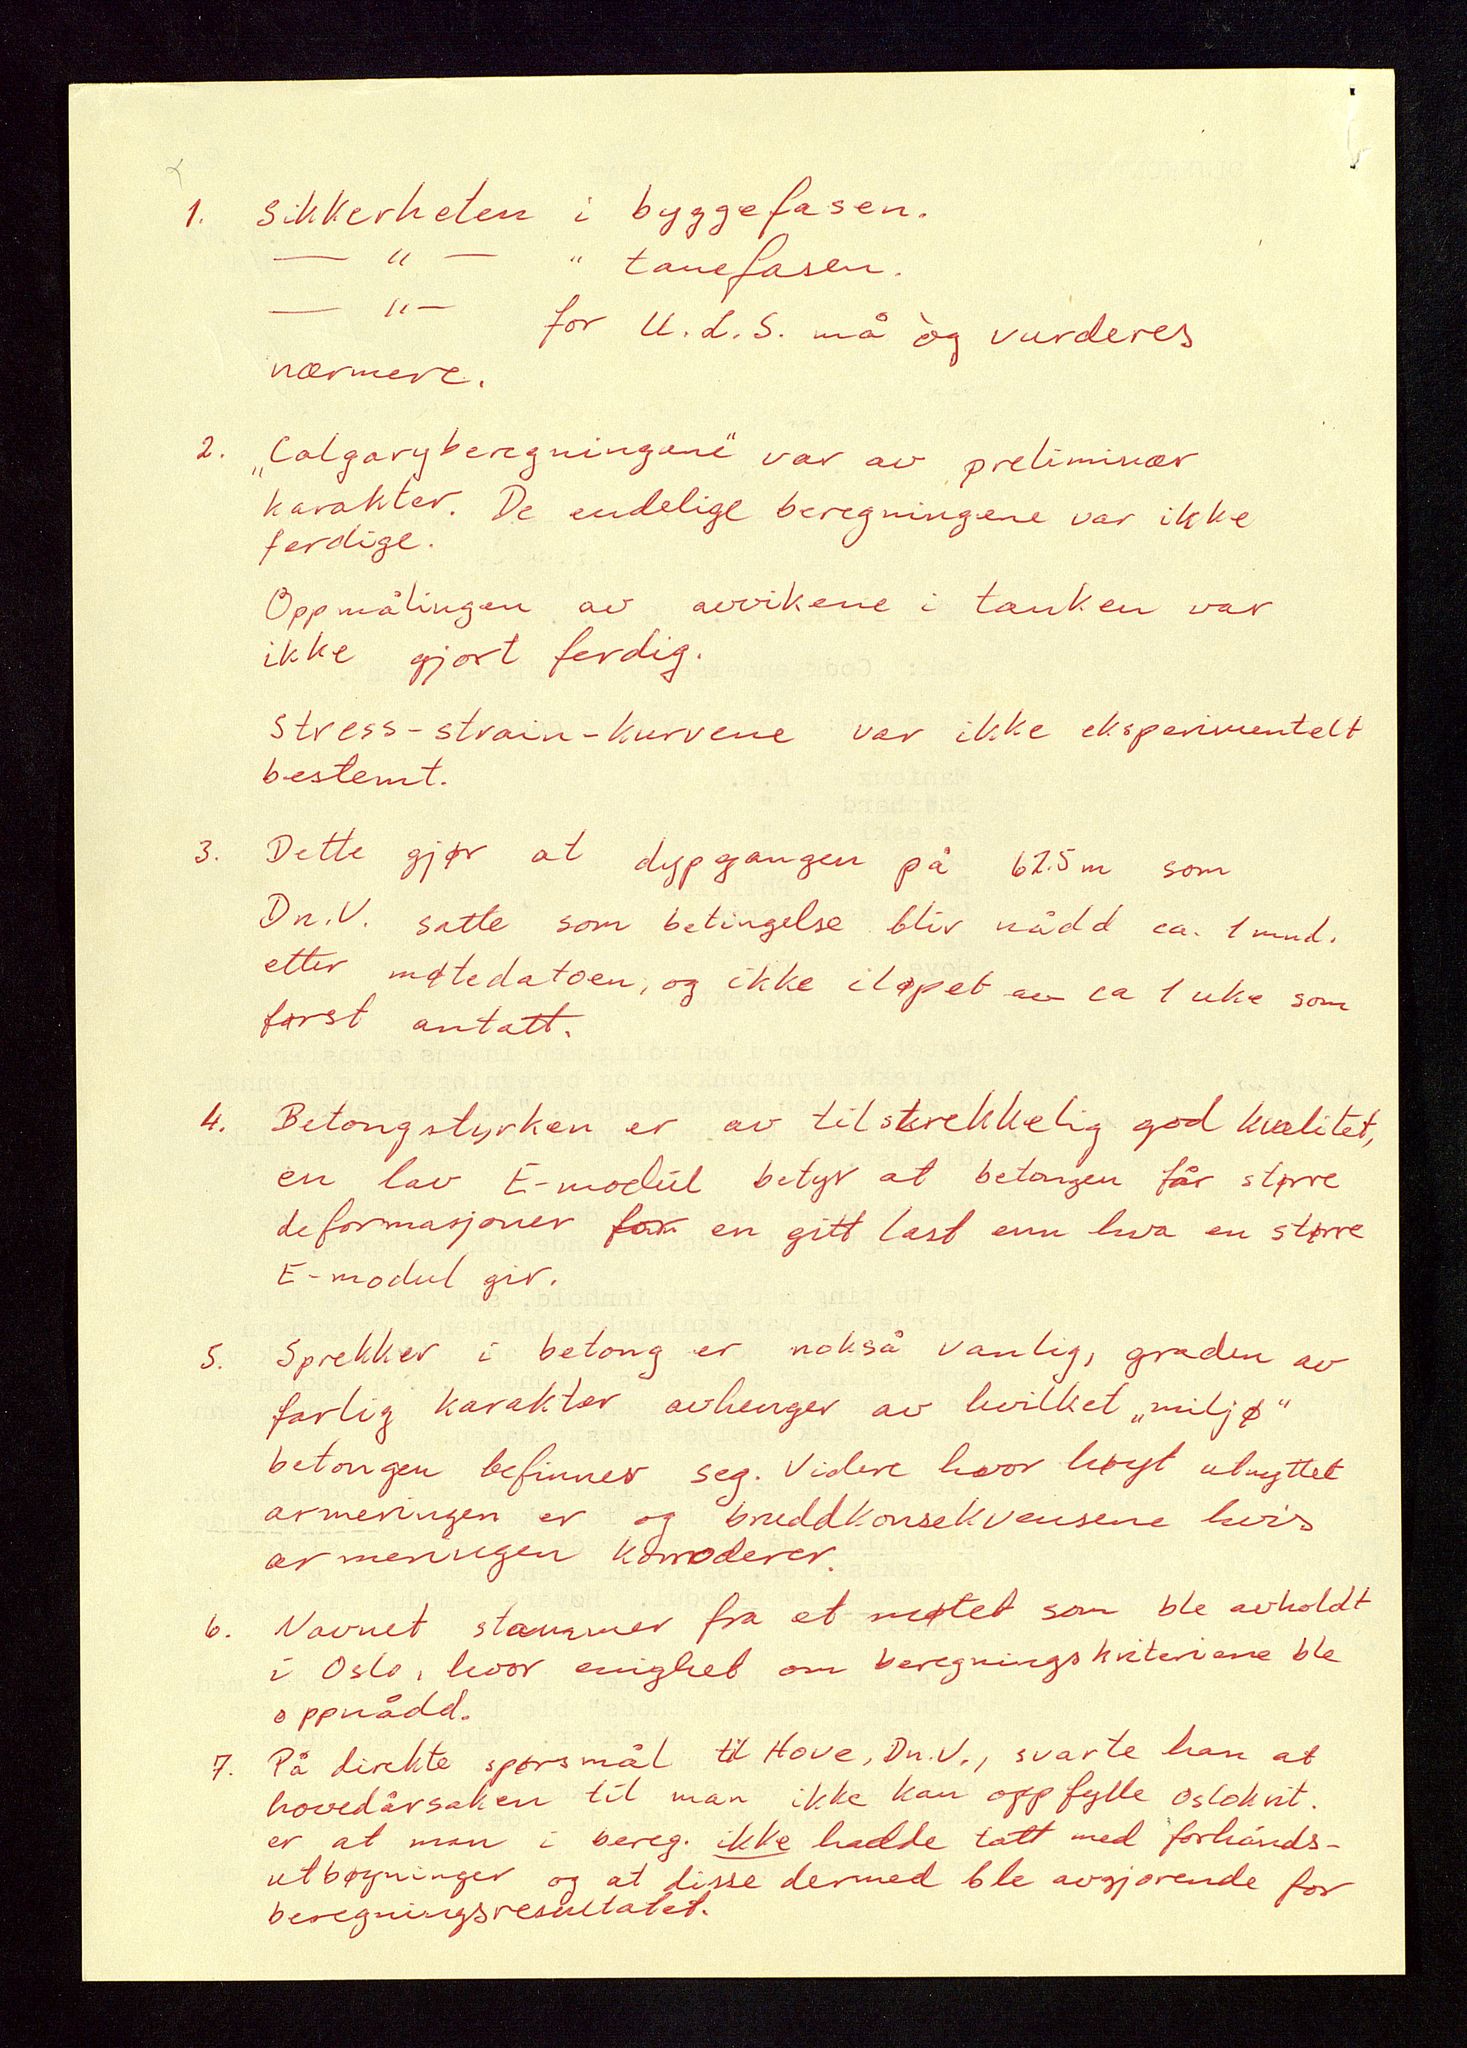 1. Sikkerheten i byggefasen.
— " — " tauefasen.
— " — for U.L.S. må òg vurderes
nærmere.
2. „Calgaryberegningene" var av preliminær
karakter. De endelige beregningene var ikke
ferdige.
Oppmålingen av avvikene i tanken var
ikke gjort ferdig.
Stress-strain-kurvene var ikke eksperimentelt
bestemt.
3. Dette gjør at dypgangen på 62.5m som
Dn.V. satte som betingelse blir nådd ca. 1 mnd.
etter møtedatoen, og ikke iløpet av ca 1 uke som
først antatt.
4. Betongstyrken er av tilstrekkelig god kvalitet,
en lav E-modul betyr at betongen får større
deformasjoner for en gitt last enn hva en større
E-modul gir.
5. Sprekker i betong er nokså vanlig, graden av
farlig karakter avhenger av hvilket „miljø"
betongen befinner seg. Videre hvor høyt utnyttet
armeringen er og bruddkonsekvensene hvis
armeringen korroderer.
6. Navnet stammer fra et møtet som ble avholdt
i Oslo, hvor enighet om beregningskriteriene ble
oppnådd.
7. På direkte spørsmål til Hove, Dn.V., svarte han at
hovedårsaken til man ikke kan oppfylle oslokrit.
er at man i bereg. ikke hadde tatt med forhånds-
utbøyninger og at disse dermed ble avgjørende for
beregningsresultatet.